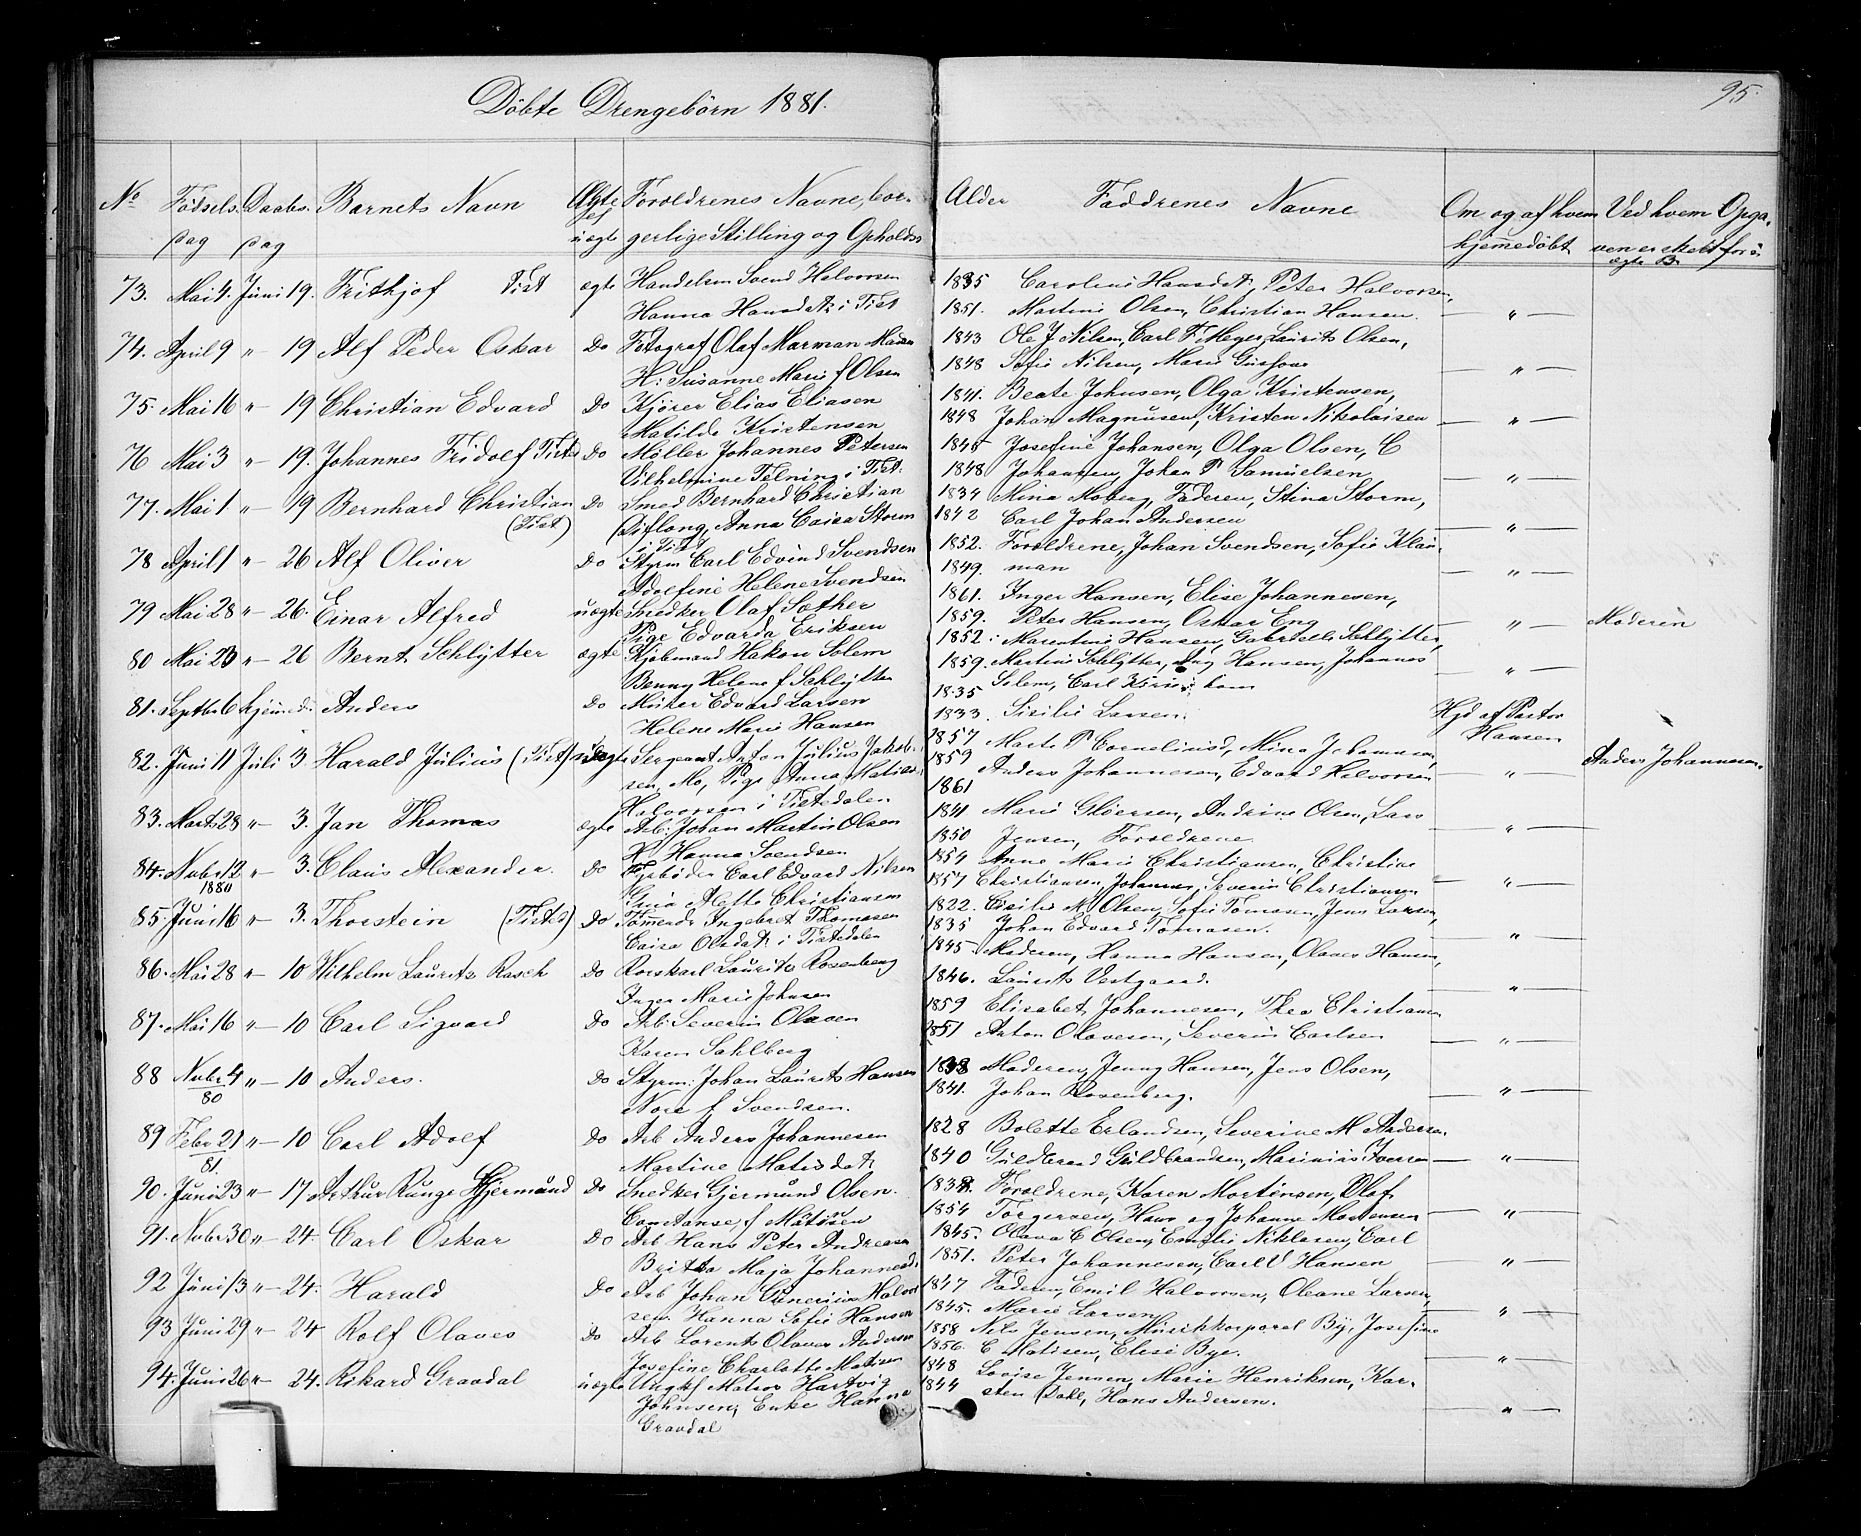 Döbte Drengebörn 1881.
95.
No Födsels Daabs. Barnets Navn Ægte Foreldrenes Navne, bor- Alder Faddrenes Navne Om og af hvem Ved hvem Opga-
dag dag uægte gerlige Stilling og Opholds hjemmedöbt ven er skedt for u
ægte B.
73. Mai 4. Juni 19. Fritkjof Tist ægte Handelsm Svend Halvorsen 1835 Caroline Hansdat, Peter Halvorsen,
Hanna Hansdatr i Tist 1851. Martine Olsen, Christian Hansen. — " —
74. April 9 " 19 Alf Peder Oskar Do Fotograf Olaf Marman 1843 Ole J Nilsen, Carl F Meyer, Laurits Olsen,
H: Susanne Marie f Olsen 1848 Sofie Nilsen, Marie — " —
75. Mai 16 " 19 Christian Edvard Do Kjörer Elias Eliasen 1841. Beate Johnsen, Olga Kristensen,
Matilde Kristensen 1848 Johan Magnusen, Kristen Nikolaisen — " —
76 Mai 3 " 19. Johannes Fridolf Tist Do Möller Johannes Petersen 1845 Josefine Johansen, Olga Olsen, C
Vilhelmine Telning i Tist. 1848 Johannsen, Johan P Samuelsen — " —
77. Mai 1 " 19 Bernhard Christian Do Smed Bernhard Christian 1834 Mina Moberg, Faderen, Stina Storm,
(Tist) Anna Caisa Storm 1842 Carl Johan Andersen — " —
i Tist
78 April 1 " 26 Alf Oliver Do Styrm Carl Edvind Svendsen 1852. Foreldrene, Johan Svendsen, Sofie Klau-
Adolfine Helene Svendsen 1849. man — " —
79 Mai 28 " 26. Einar Alfred uægte Snedker Olaf Sæther 1861. Inger Hansen, Elise Johannesen,
Pige Edvarda Eriksen 1859. Peter Hansen, Oskar Eng — " — Moderen
80 Mai 23 " 26 Bernt Schlytter ægte Kjöbmand Hakon Solem 1852. Marentine Hansen, Gabrielle Schlytter,
Benny Helene f Schlytter 1859. Martine Schlytter, Hansen, Johannes — " —
81. Septbr 6 hjemmed. Anders Do Murer Edvard Larsen 1835 Solem, Carl
Helene Marie Hansen 1833. Sisilie Larsen. Hjd af Pastor
Hansen
82. Juni 11 Juli 3 Harald Julius (Tist) uægte Sergeant Anton Julius Jakob- 1857 Marte P Corneliusd, Mina Johannesen,
sen, Mo, Pige Anna Matilde 1859 Anders Johannesen, Edvard Halvorsen — " — Anders Johannesen.
Halvorsen i Tistedalen 1861
83. Marts 28 " 3. Jan Thomas ægte Arb: Johan Martin Olsen 1841 Marie Glöersen, Andrine Olsen, Lars
H. Hanna Svendsen 1850 Jensen, Foreldrene — " —
84. Nvbr 12 " 3. Claus Alexander. Do Fyrböder Carl Edvard Nilsen 1854 Anne Marie Christiansen, Christine
1880 Gina Mette Christiansen 1857 Christiansen, Johannes, Severin Christiansen — " —
85. Juni 16 " 3. Thorstein (Tist) Do Tömmerm Ingebret Thomasen 1822. Cicilie M Olsen, Sofie Tomasen, Jens Larsen,
Caisa Olsdatr i Tistedalen 1835 Johan Edvard Tomasen. — " —
86. Mai 28 " 10 Wilhelm Laurits Rasch Do Rorskarl Laurits Rosenberg 1845 Moderen, Hanna Hansen, Olaves Hansen,
Inger Marie Johnsen 1846. Laurits Vestgaard. — " —
87. Mai 16 " 10 Carl Sigvard Do Arb: Severin Olavesen 1859 Elisabet Johannesen, Thea Christiansen
Karen Sahlberg 1851 Anton Olavesen, Severin Carlsen — " —
88 Nvbr 4 " 10 Anders. Do Styrm: Johan Laurits Hansen 1838 Moderen, Jenny Hansen, Jens Olsen,
80 Nora f Svendsen. 1841. Johan Rosenberg. — " —
89 Febr 21 " 10 Carl Adolf Do Arb Anders Johannesen 1828 Bolette Erlandsen, Severine M Andersen
81. Martine Matisdatr 1840 Guldbrand Guldbrandsen, Marinius Iversen — " —
90. Juni 23 " 17 Artkur Runge Hjermund Do Snedker Gjermund Olsen. 1832. Foreldrene, Karen Mortensen, Olaf
Constanse, f Matisen 1854 Torgersen, Hans og Johanne Mortensen — " —
91. Nvbr 30 " 24. Carl Oskar Do Arb Hans Peter Andreasen 1845. Olava C Olsen, Emilie Niklasen, Carl
Britta Maja Johannesd. 1851. Peter Johannesen, Carl V Hansen — " —
92 Juni 13 " 24. Harald Do Arb Johan Halvor 1847 Faderen, Emil Halvorsen, Oleane Larsen,
sen. Hanna Sofie Hansen 1845. Marie Larsen — " —
93 Juni 29 " 24 Rolf Olaves Do Arb Lorents Olaves Andersen 1858 Nils Jensen, Musikkorporal By, Josefine
Josefine Charlotte Matisen 1856. E Matisen, Elise Bye. — " —
94. Juni 26 " 24. Rikard Gravdal uægte Ungkf Matros Hartvig 1848 Lovise Jensen, Marie Henriksen, Kar-
Johnsen, Enke Hanna 1844 sten Dahl, Hans Andersen. — " —
Gravdal